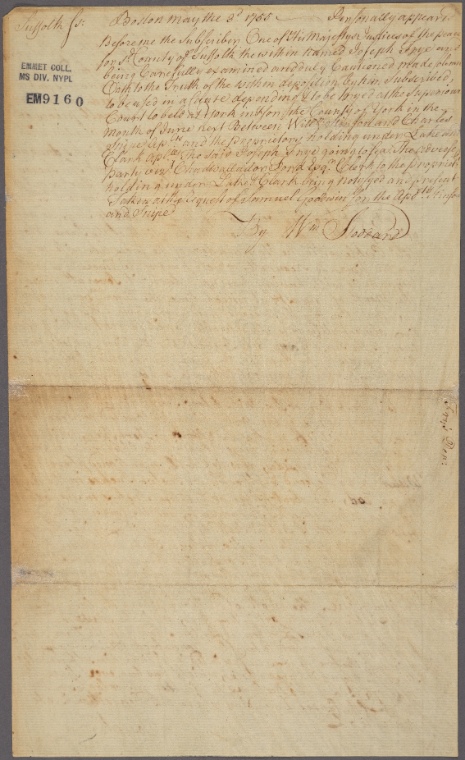 Suffolk ss. Boston May the 3d 1755 Personally appeared
Before me the Subscriber One of his Majestys Justices of the peace
for ye County of Suffolk the within Named Joseph and
being Carefully examined and duly Cautioned made Solemn
Oath to the Truth of the within deposition by him Subscribed,
to be used in a Cause depending & to be tryed at the Superiour
Court to be held at York in & for the County of York in the
Month of June next Between and Charles
and the proprietors holding under Lake and
Clark The said Joseph going to Sea The adverse
party vizt Chadwallador Ford Esqr Clerk to the proprietors
holding under Lake & Clark being notifyed and present
Taken at ye request of Samuel Goodwin for the
and
By Wm Stoddard
EMMET COLL.
MS DIV. NYPL
EM9160